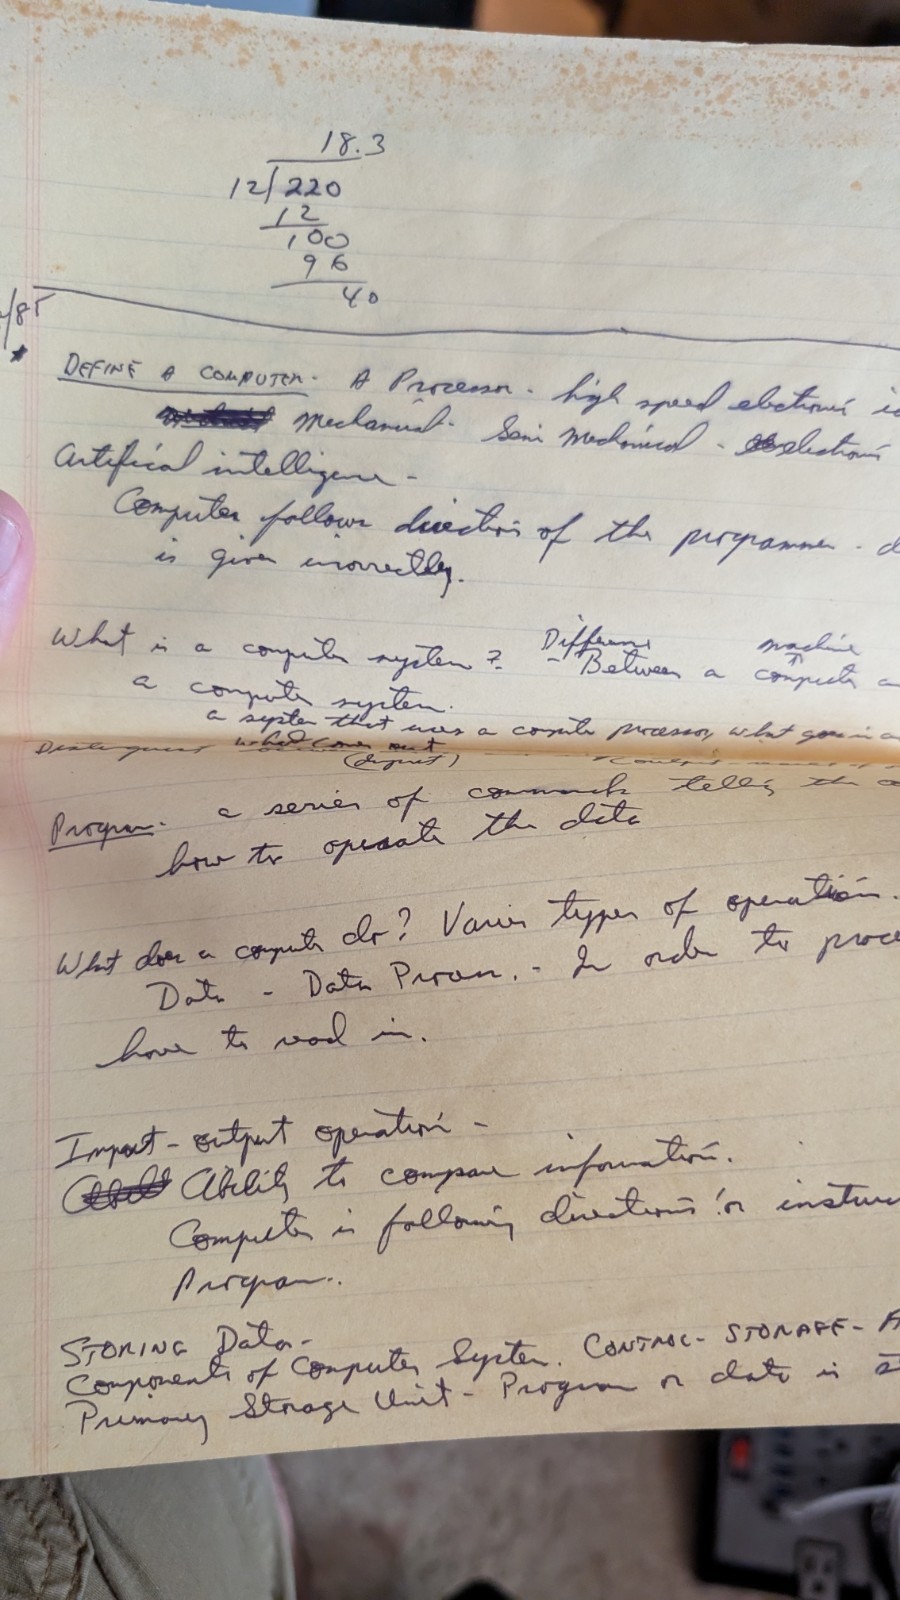 18.3
12/220
12
100
96
40
/85
DEFINE A COMPUTER - A Processor - high speed electronic
Mechanical - Semi Mechanical - electronic
Artifical intelligence -
Computer follows direction of the programmer -
is given incorrectly.
Difference machine
What is a computer system? - Between a computer
a computer system.
a system that uses a computer processor, what goes in
what comes out
Program - a series of commands telling the
how to operate the data
What does a computer do? Varies types of operation.
Data - Data Process. - In order to
have to read in.
Imput - output operation -
Ability to compare information.
Computer is following directions in
Program.
STORING Data -
Components of Computer System. CONTROL - STORAGE - A
Primary Storage Unit - Program or data is